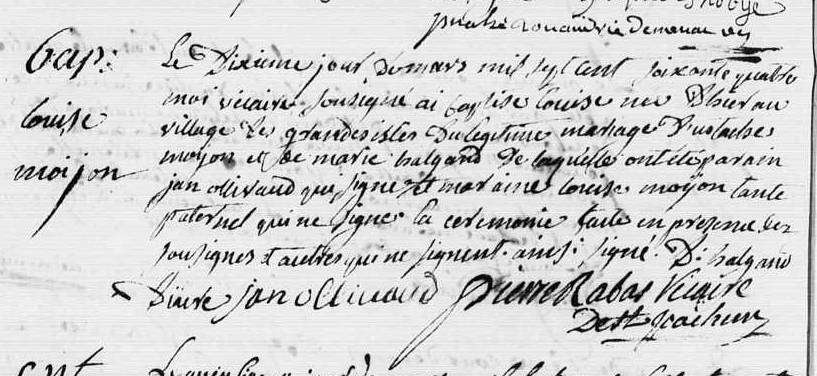 Bap:
louise
moijon
Le Dixieme jour de mars mil sept cent soixante quatre
moi vicaire sousigné ai baptisé louise nee d'hier au
village des grandes isles du legitime mariage d'ustaches
moyon et de marie halgand de laquelle ont été parain
jan ollivaud qui signe et maraine louise moyon tante
paternel qui ne signe. la ceremonie faite en presence des
sousignes et autres qui ne signent. ainsi signé. D: halgand
jan ollivaud pierre Rabas vicaire
De St joachim